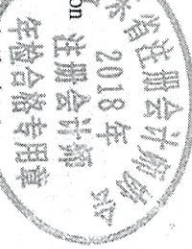 省注册会计师协会
2018 年
注册会计师
年检合格专用章
on